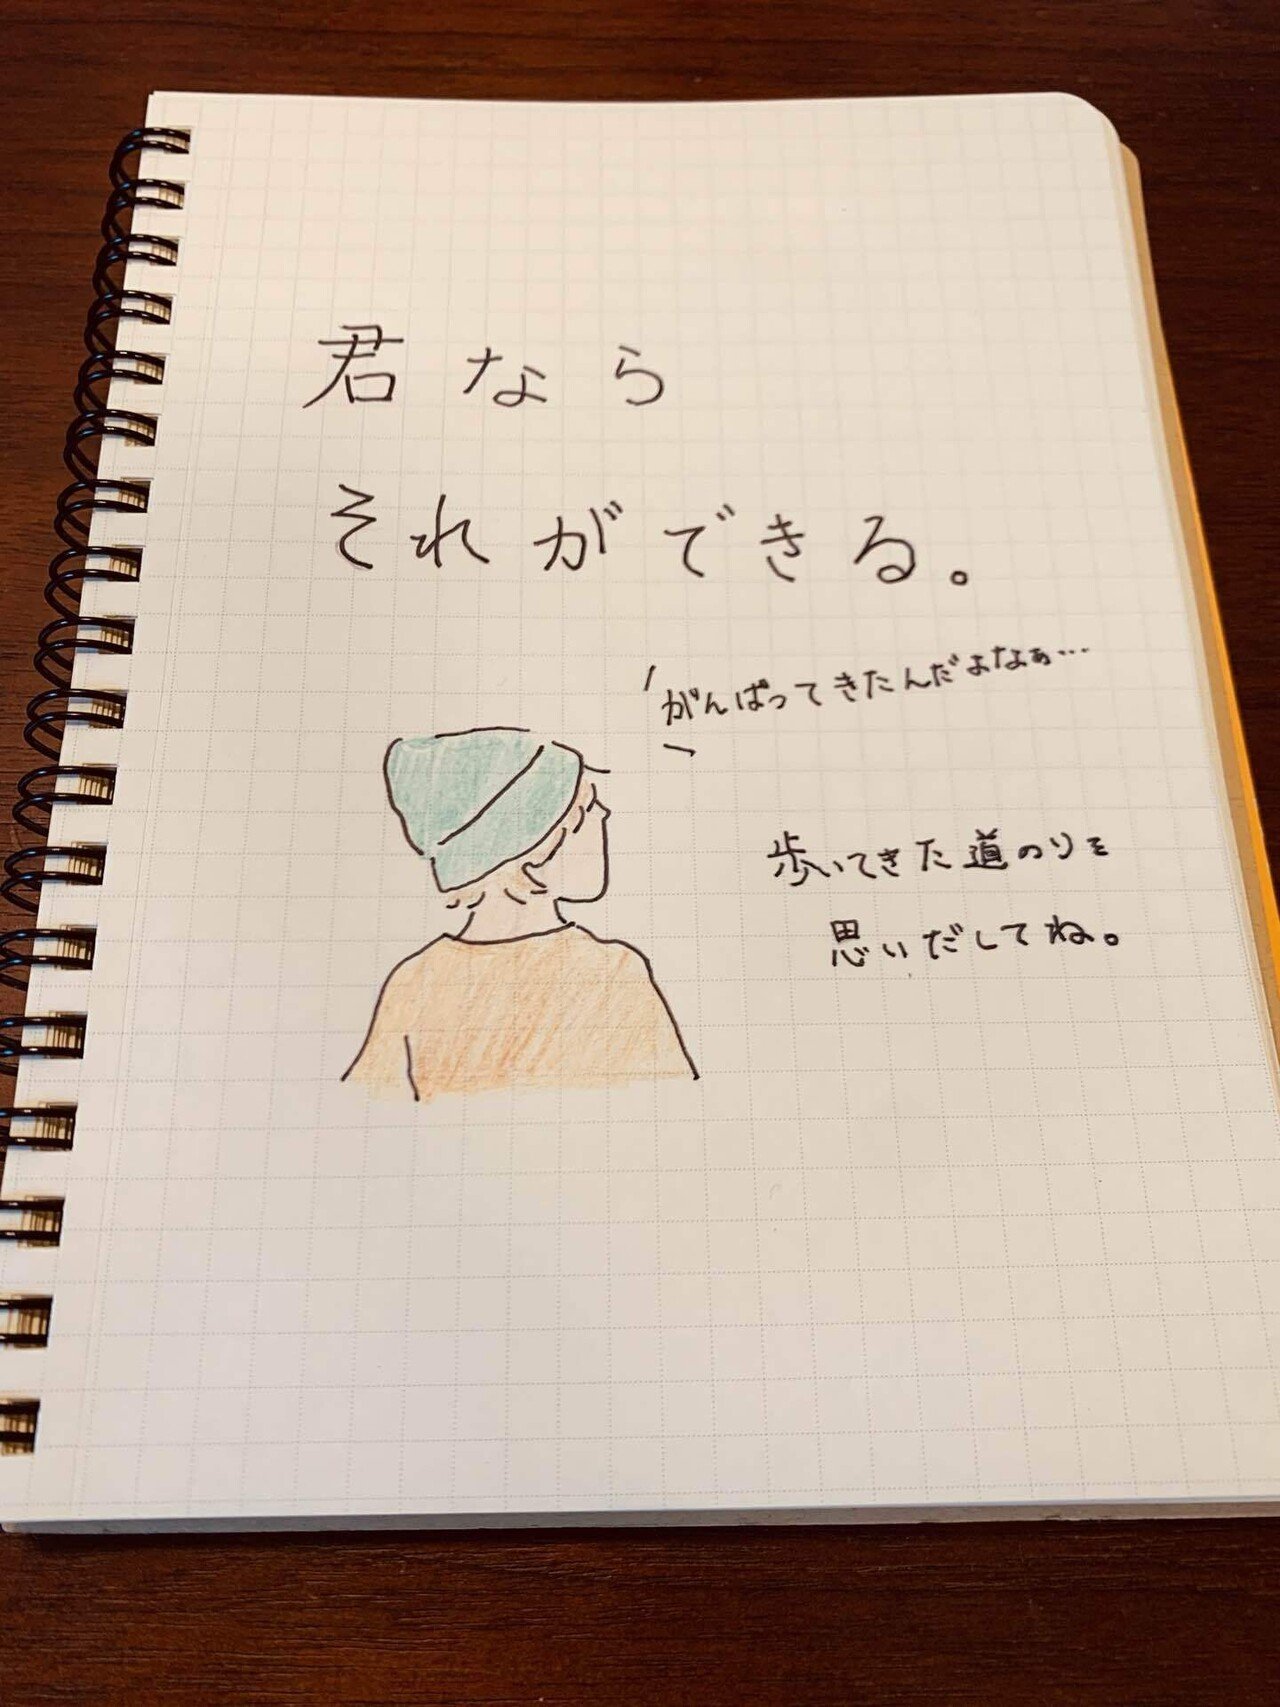 君なら
それができる。
がんばってきたんだよなぁ…
歩いてきた道のりを
思いだしてね。